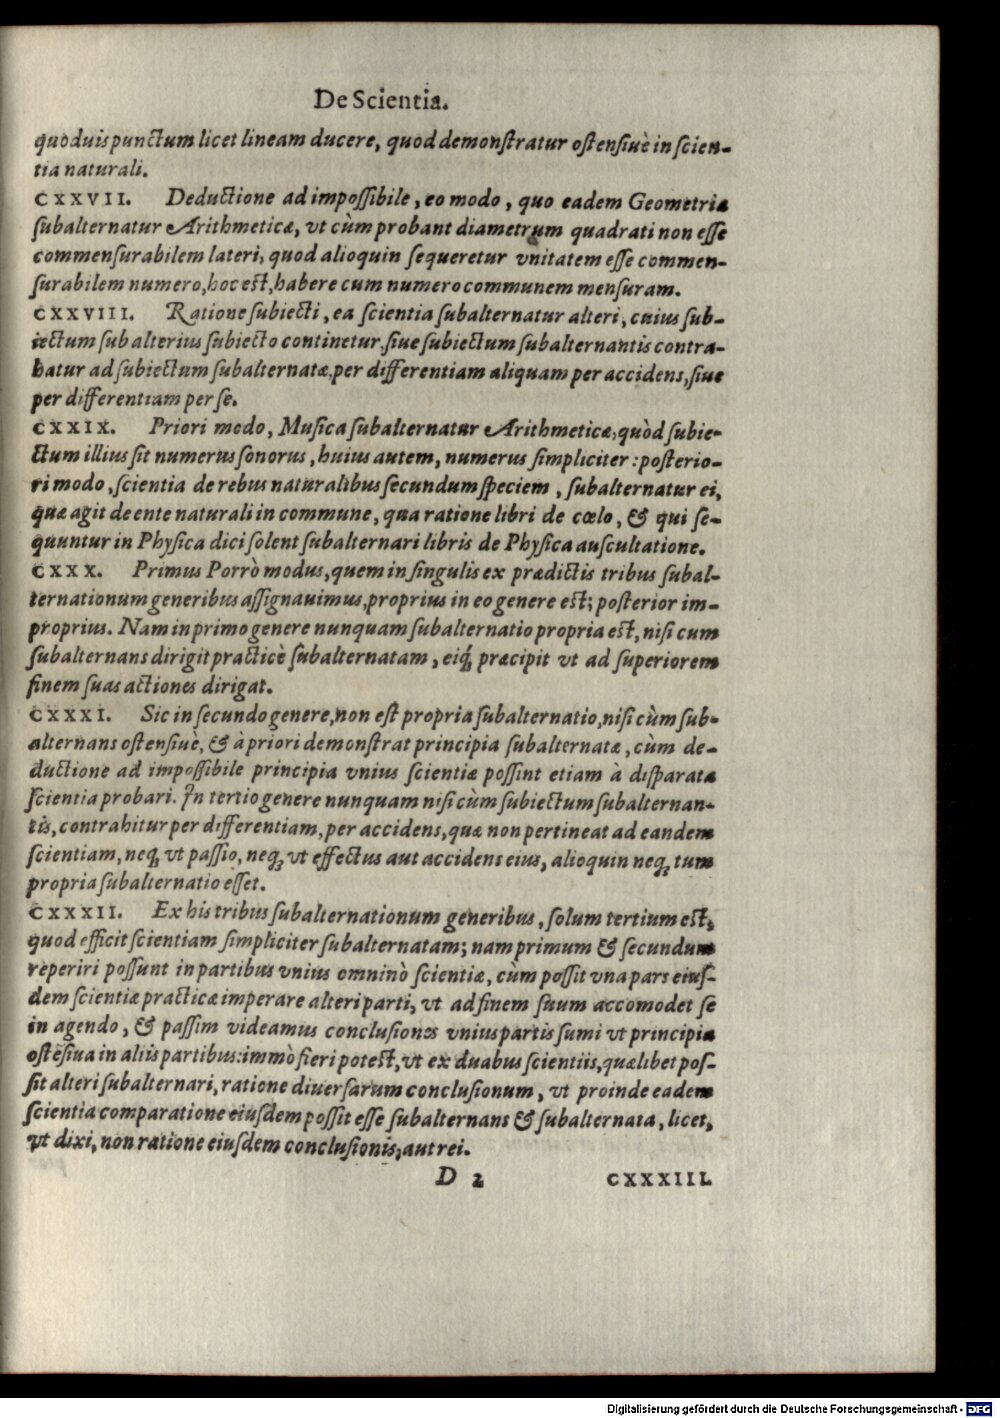 De Scientia.
quoduis punctum licet lineam ducere, quod demonſtratur oſtenſiuè in ſcien-
tia naturali.
CXXVII. Deductione ad impoſſibile, eo modo, quo eadem Geometria
ſubalternatur Arithmeticæ, vt cùm probant diametrum quadrati non eſſe
commenſurabilem lateri, quod alioquin ſequeretur vnitatem eſſe commen-
ſurabilem numero, hoc eſt, habere cum numero communem menſuram.
CXXVIII. Ratione ſubiecti, ea ſcientia ſubalternatur alteri, cuius ſub-
iectum ſub alterius ſubiecto continetur, ſiue ſubiectum ſubalternantis contra-
hatur ad ſubiectum ſubalternatæ, per differentiam aliquam per accidens, ſiue
per differentiam per ſe.
CXXIX. Priori modo, Muſica ſubalternatur Arithmeticæ, quòd ſubie-
ctum illius ſit numerus ſonorus, huius autem, numerus ſimpliciter: poſterio-
ri modo, ſcientia de rebus naturalibus ſecundum ſpeciem, ſubalternatur ei,
quæ agit de ente naturali in commune, qua ratione libri de cœlo, & qui ſe-
quuntur in Phyſica dici ſolent ſubalternari libris de Phyſica auſcultatione.
CXXX. Primus Porrò modus, quem in ſingulis ex prædictis tribus ſubal-
ternationum generibus aſſignauimus, proprius in eo genere eſt; poſterior im-
proprius. Nam in primo genere nunquam ſubalternatio propria eſt, niſi cum
ſubalternans dirigit practicè ſubalternatam, eiq́; præcipit vt ad ſuperiorem
finem ſuas actiones dirigat.
CXXXI. Sic in ſecundo genere, non eſt propria ſubalternatio, niſi cùm ſub-
alternans oſtenſiuè, & à priori demonſtrat principia ſubalternatæ, cùm de-
ductione ad impoſſibile principia vnius ſcientiæ poſſint etiam à diſparata
ſcientia probari. In tertio genere nunquam niſi cùm ſubiectum ſubalternan-
tis, contrahitur per differentiam, per accidens, quæ non pertineat ad eandem
ſcientiam, neq; vt paſſio, neq; vt effectus aut accidens eius, alioquin neq; tum
propria ſubalternatio eſſet.
CXXXII. Ex his tribus ſubalternationum generibus, ſolum tertium eſt,
quod efficit ſcientiam ſimpliciter ſubalternatam; nam primum & ſecundum
reperiri poſſunt in partibus vnius omninò ſcientiæ, cùm poſſit vna pars eiuſ-
dem ſcientiæ practicæ imperare alteri parti, vt ad finem ſuum accomodet ſe
in agendo, & paſſim videamus concluſiones vnius partis ſumi vt principia
oſtẽſiua in aliis partibus: immò fieri poteſt, vt ex duabus ſcientiis, quælibet poſ-
ſit alteri ſubalternari, ratione diuerſarum concluſionum, vt proinde eadem
ſcientia comparatione eiuſdem poſſit eſſe ſubalternans & ſubalternata, licet,
vt dixi, non ratione eiuſdem concluſionis, aut rei.
D 2 CXXXIII.
Digitalisierung gefördert durch die Deutsche Forschungsgemeinschaft - DFG